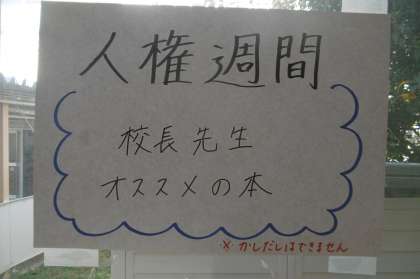 人権週間
校長先生
オススメの本
※かしだしはできません